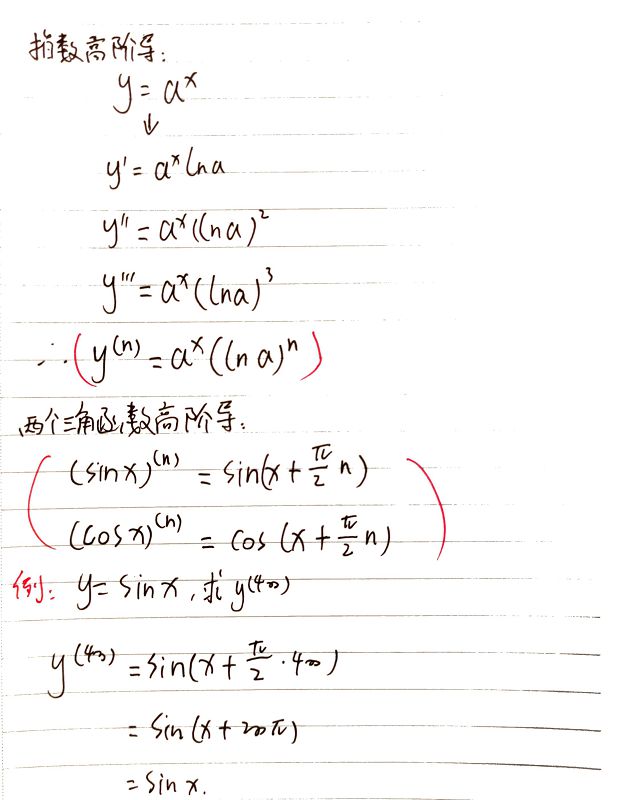 指数高阶导:
y = aˣ
↓
y' = aˣ lna
y'' = aˣ(lna)²
y''' = aˣ(lna)³
∴ (y⁽ⁿ⁾ = aˣ(ln a)ⁿ)
两个三角函数高阶导:
(sinx)⁽ⁿ⁾ = sin(x + π/2 n)
(cosx)⁽ⁿ⁾ = cos (x + π/2 n)
例: y = sin x, 求 y⁽⁴⁰⁰⁾
y⁽⁴⁰⁰⁾ = sin(x + π/2 · 400)
= sin(x + 200π)
= sin x.